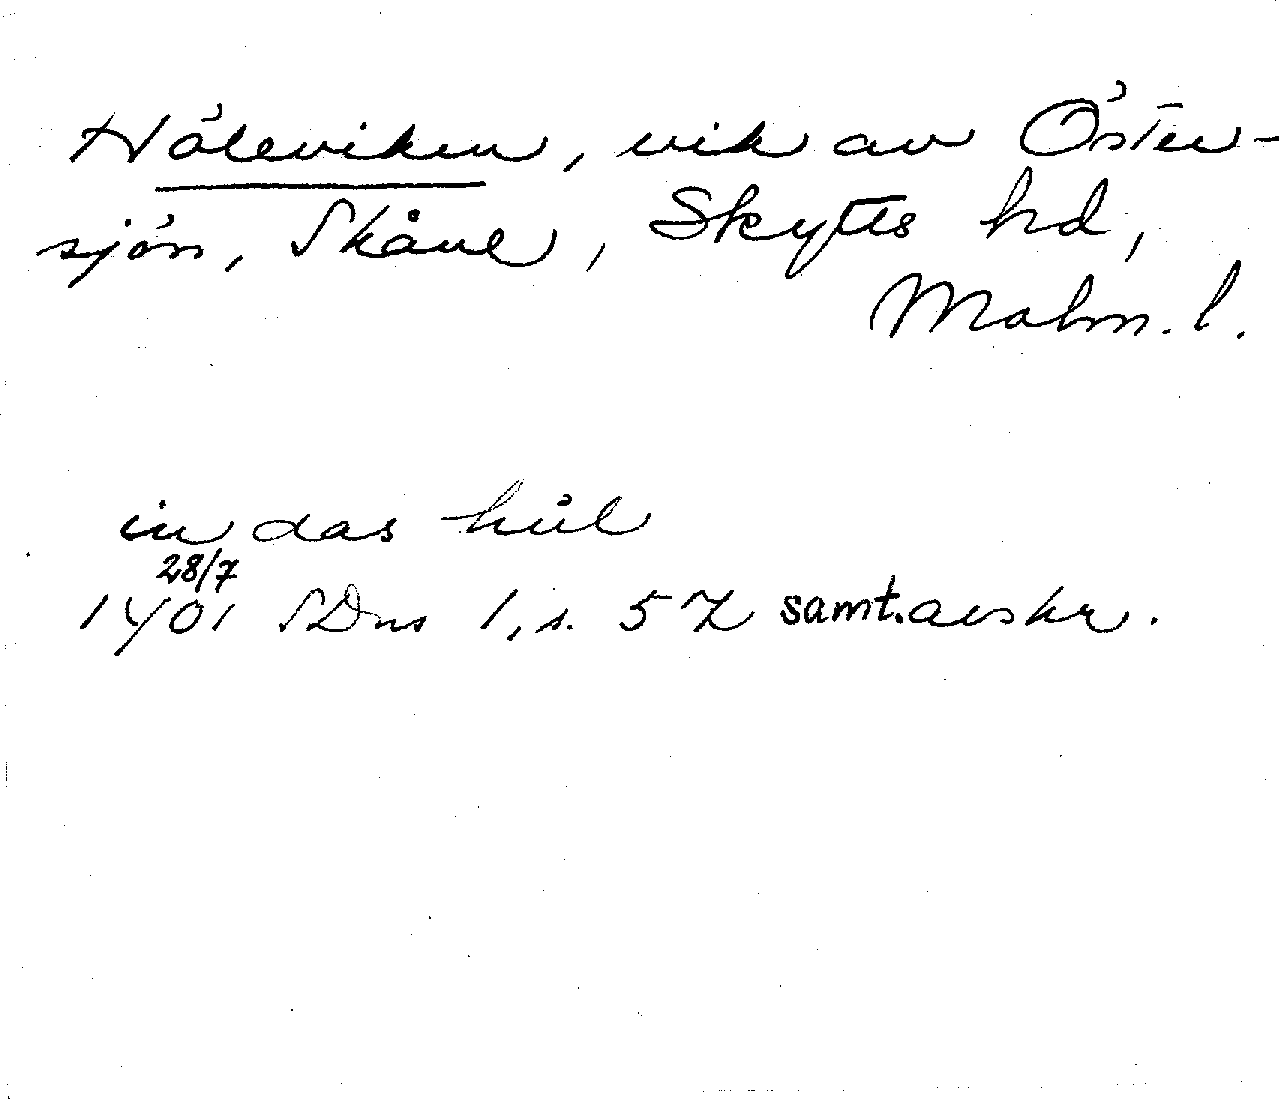 Höleviken, vik av Öster-
sjön, Skåne, Skytts hd,
Malm. l.
in das hůl
28/7
1401 SDns 1, s. 57 samt. avskr.